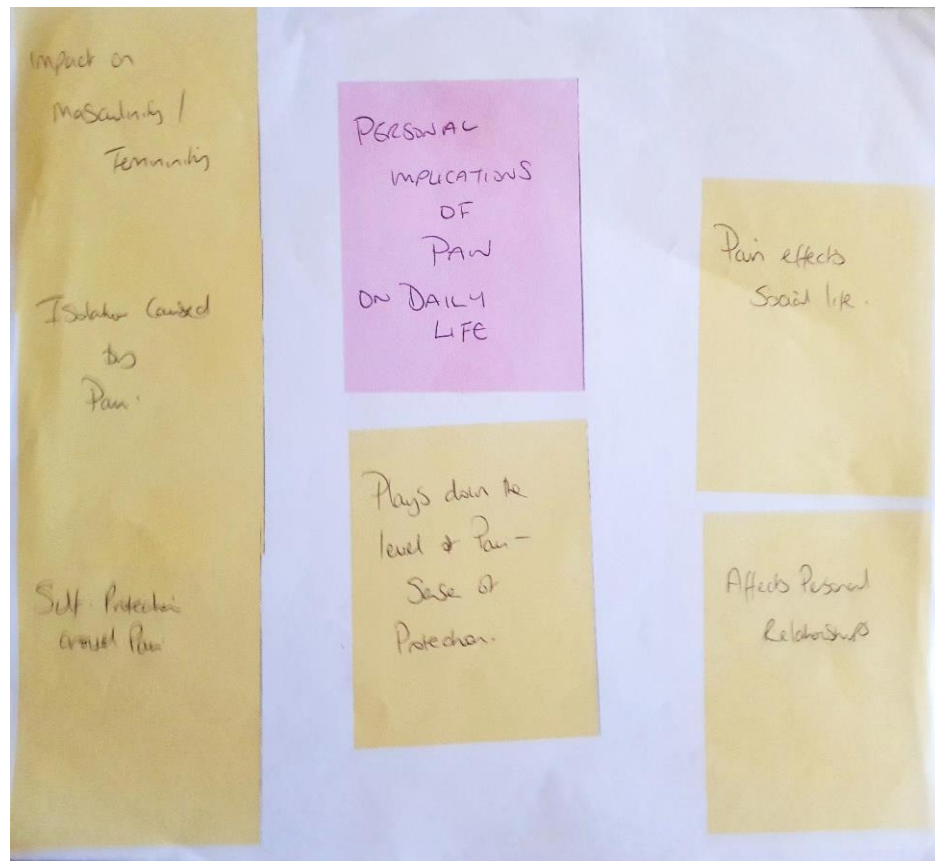 Impact on
Masculinity /
Femininity
Isolation Caused
by
Pain.
Self-Protection
around Pain.
PERSONAL
IMPLICATIONS
OF
PAIN
ON DAILY
LIFE
Plays down the
level of Pain –
Sense of
Protection.
Pain effects
Social life.
Affects Personal
Relationships